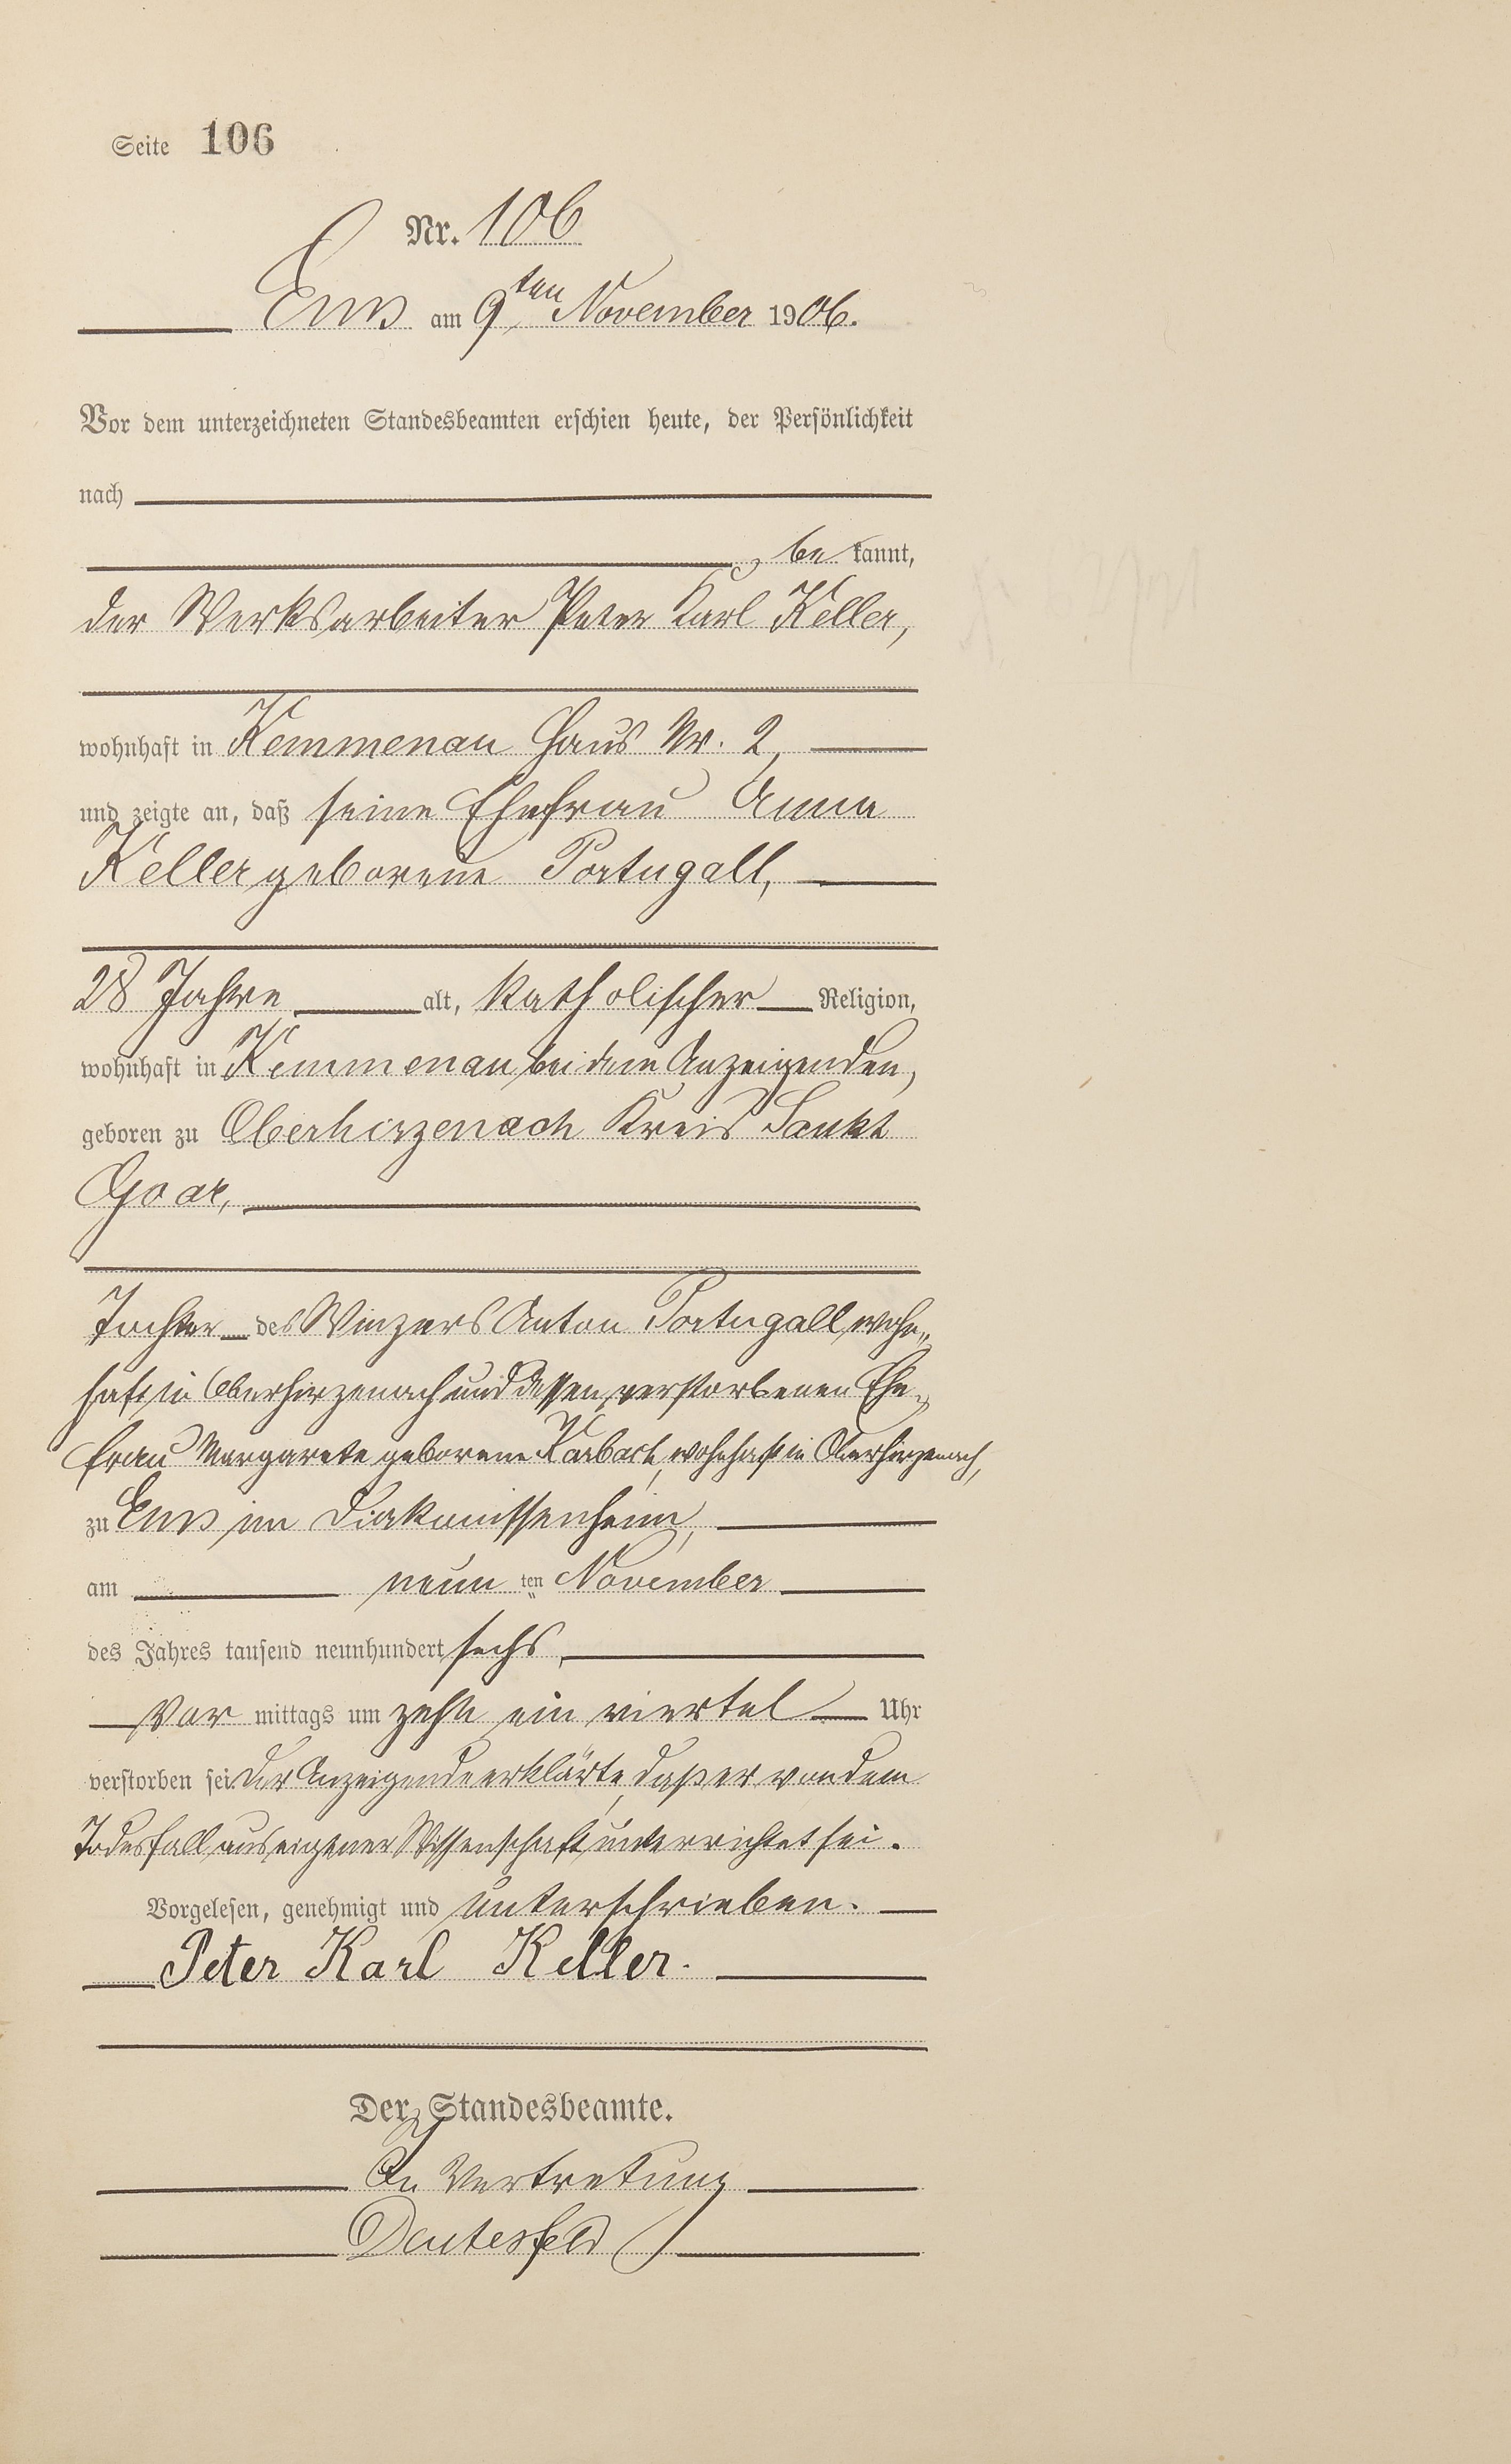 Seite 106
Nr. 106
Ems am 9ten November 1906.
Vor dem unterzeichneten Standesbeamten erschien heute, der Persönlichkeit
nach
be kannt,
der Werksarbeiter Peter Karl Keller,
wohnhaft in Kemmenau Haus Nr. 2,
und zeigte an, daß seine Ehefrau Anna
Keller geborene Portugall,
28 Jahre alt, katholischer Religion,
wohnhaft in Kemmenau bei dem Anzeigenden,
geboren zu Oberhirzenach Kreis Sankt
Goar,
Tochter des Winzers Anton Portugall wohn„
haft in Oberhirzenach und dessen verstorbenen Ehe„
frau Margarete geborene Karbach, wohnhaft in Oberhirzenach,
zu Ems im Diakonissenheim,
am neun ten November
des Jahres tausend neunhundert sechs,
Vor mittags um zehn ein viertel Uhr
verstorben sei Der Anzeigende erklärte, daß er von dem
Todesfall aus eigener Wissenschaft unterrichtet sei.
Vorgelesen, genehmigt und unterschrieben.
Peter Karl Keller.
Der Standesbeamte.
In Vertretung